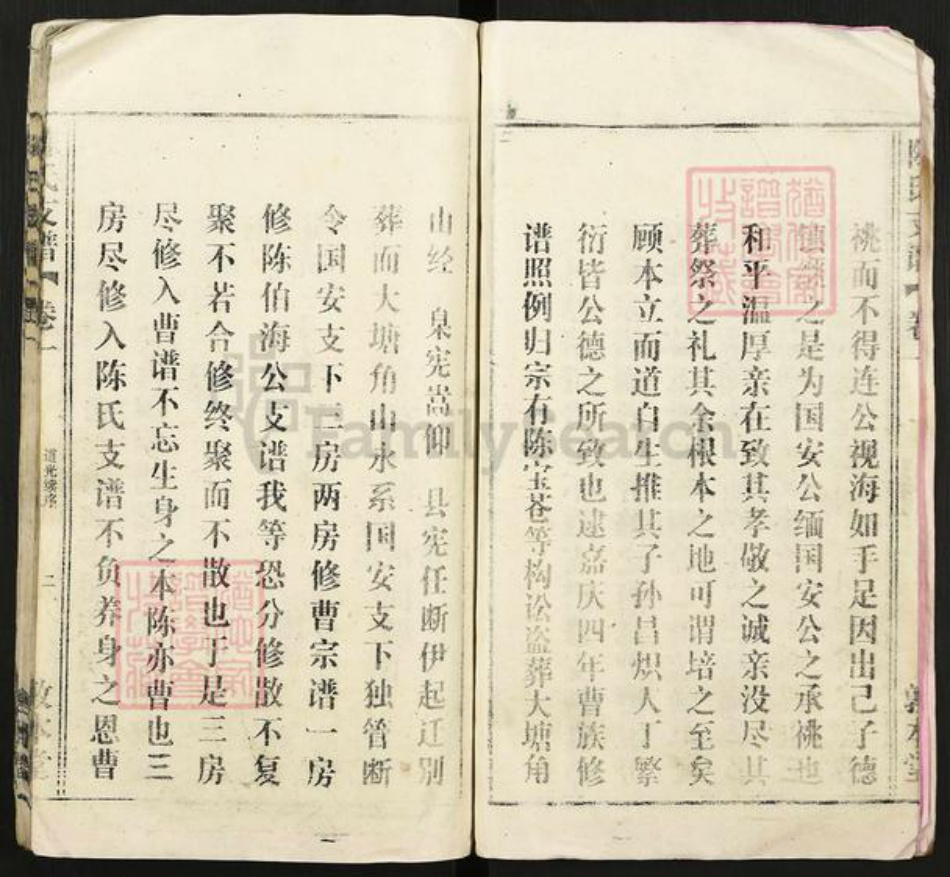 祧而不得连公视海如手足因出己子德
之是为国安公缅国安公之承祧也
和平温厚亲在致其孝敬之诚亲没尽其
葬祭之礼其余根本之地可谓培之至矣
顾本立而道自生推其子孙昌炽人丁繁
衍皆公德之所致也逮嘉庆四年曹族修
谱照例归宗有陈宝苍等构讼盗葬大塘角
山经 臬宪嵩仰 县宪任断伊起迁别
葬而大塘角山永系国安支下独管断
令国安支下三房两房修曹宗谱一房
修陈伯海公支谱我等恐分修散不复
聚不若合修终聚而不散也于是三房
尽修入曹谱不忘生身之本陈亦曹也三
房尽修入陈氏支谱不负养身之恩曹
支谱 卷一
道光续序
二
FamilySearch